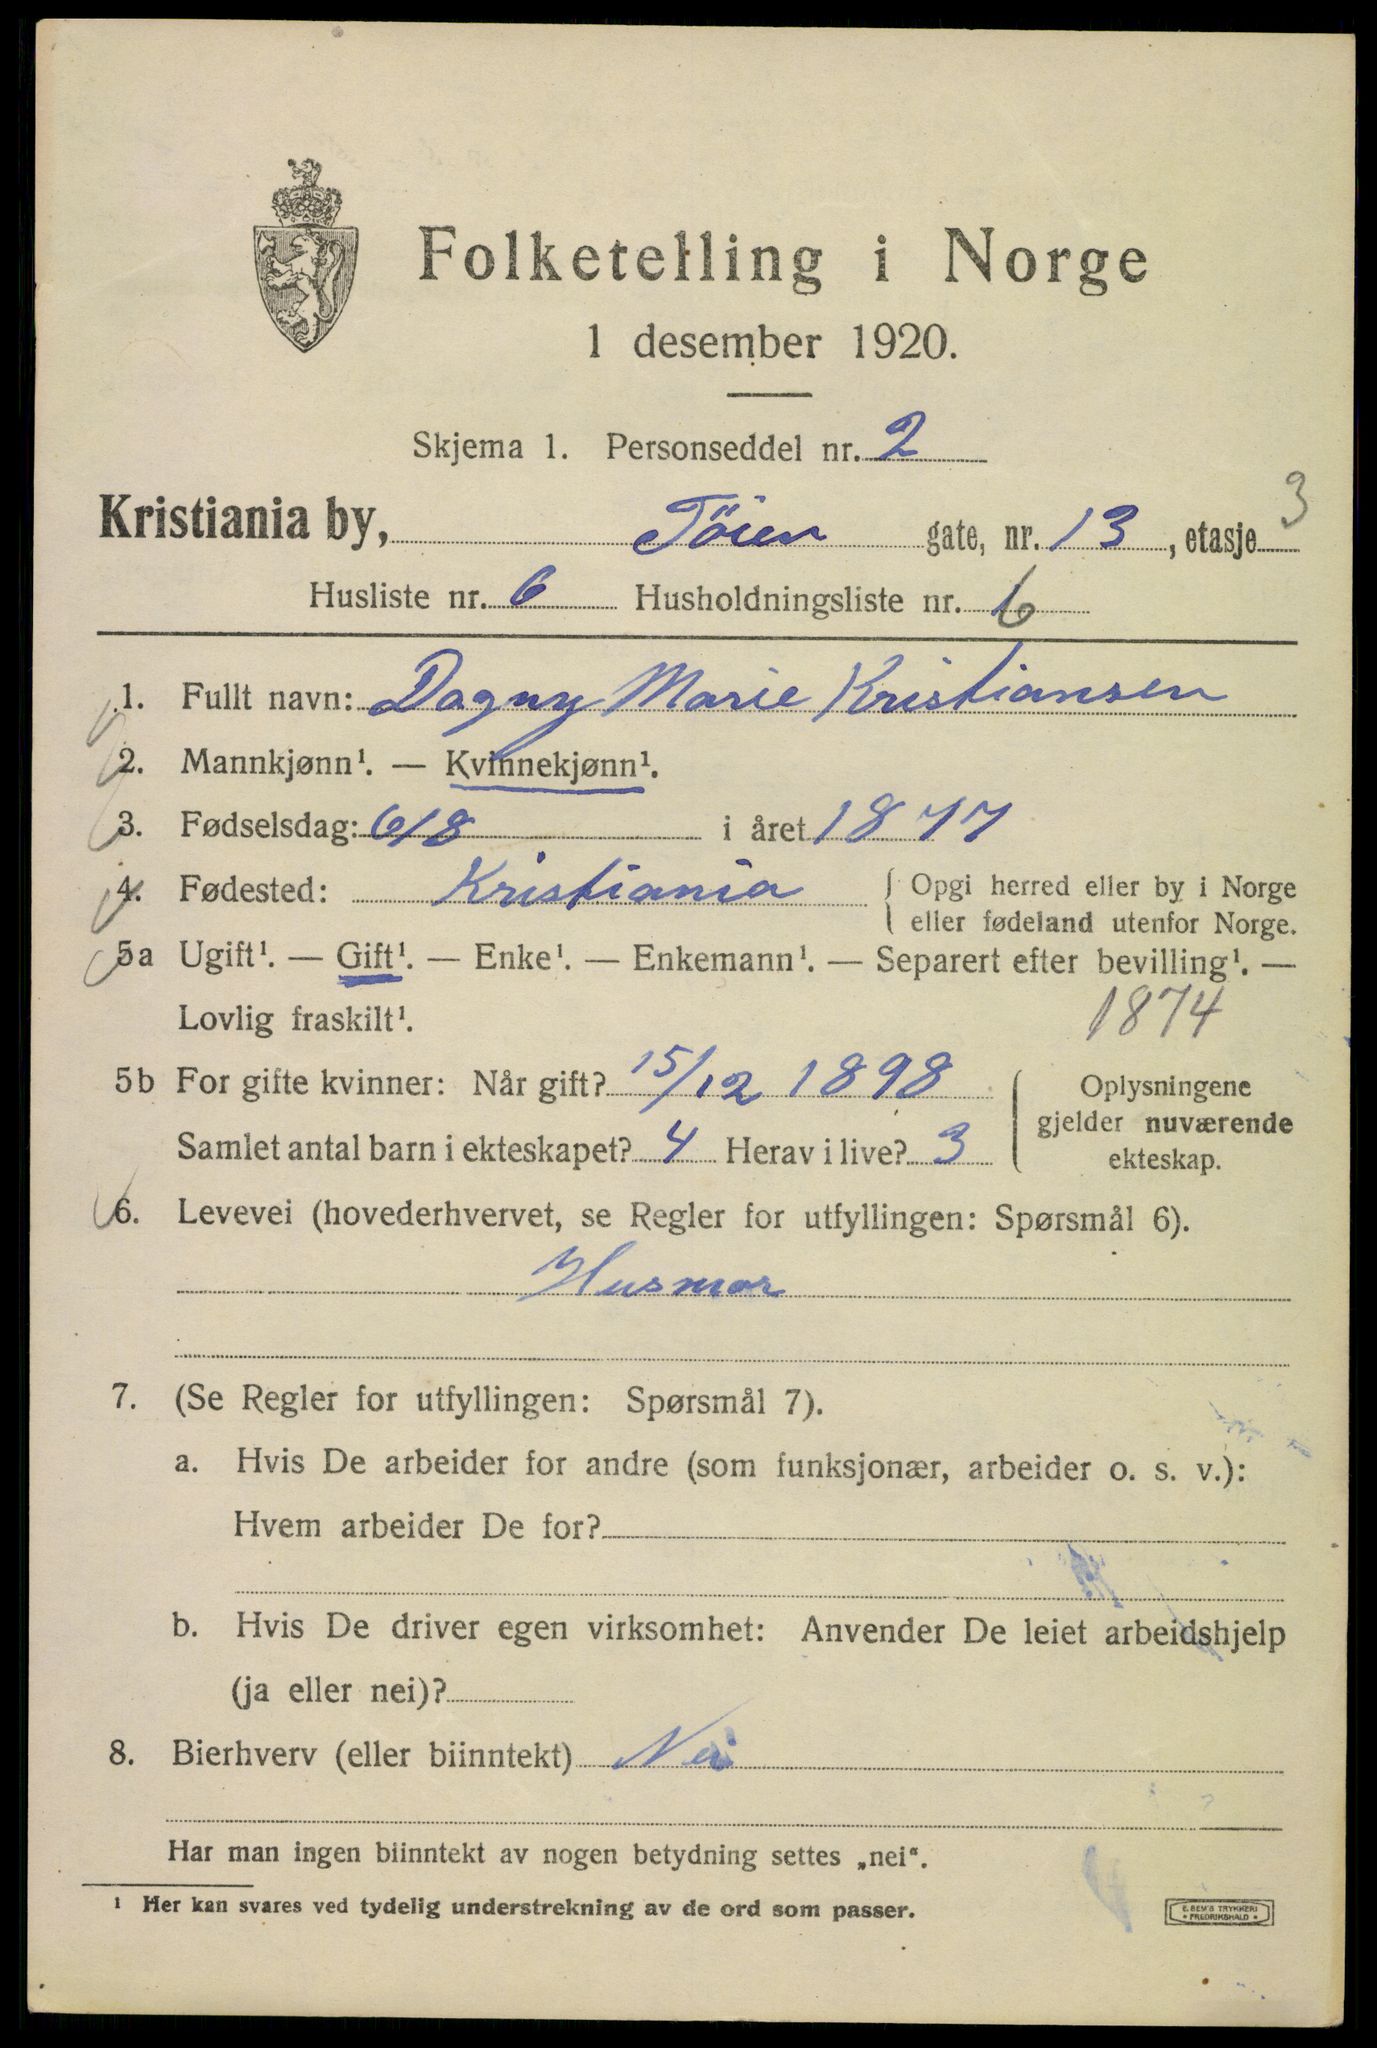 Folketelling i Norge
1 desember 1920.
Skjema 1. Personseddel nr. 2
Kristiania by, Töien gate, nr. 13, etasje 3
Husliste nr. 6 Husholdningsliste nr. 6
1. Fullt navn: Dagny Marie Kristiansen
2. Mannkjønn¹. — Kvinnekjønn¹.
3. Fødselsdag: 6/8 i året 1877
4. Fødested: Kristiania { Opgi herred eller by i Norge
eller fødeland utenfor Norge.
5a Ugift¹. — Gift¹. — Enke¹. — Enkemann¹. — Separert efter bevilling¹. —
Lovlig fraskilt¹. 1874
5b For gifte kvinner: Når gift? 15/12 1898
Samlet antal barn i ekteskapet? 4 Herav i live? 3
Oplysningene
gjelder nuværende
ekteskap.
6. Levevei (hovederhvervet, se Regler for utfyllingen: Spørsmål 6).
Husmor
7. (Se Regler for utfyllingen: Spørsmål 7).
a. Hvis De arbeider for andre (som funksjonær, arbeider o. s. v.):
Hvem arbeider De for?
b. Hvis De driver egen virksomhet: Anvender De leiet arbeidshjelp
(ja eller nei)?
8. Bierhverv (eller biinntekt) Nei
Har man ingen biinntekt av nogen betydning settes „nei“.
¹ Her kan svares ved tydelig understrekning av de ord som passer.
E. SEM'S TRYKKERI
• FREDRIKSHALD •